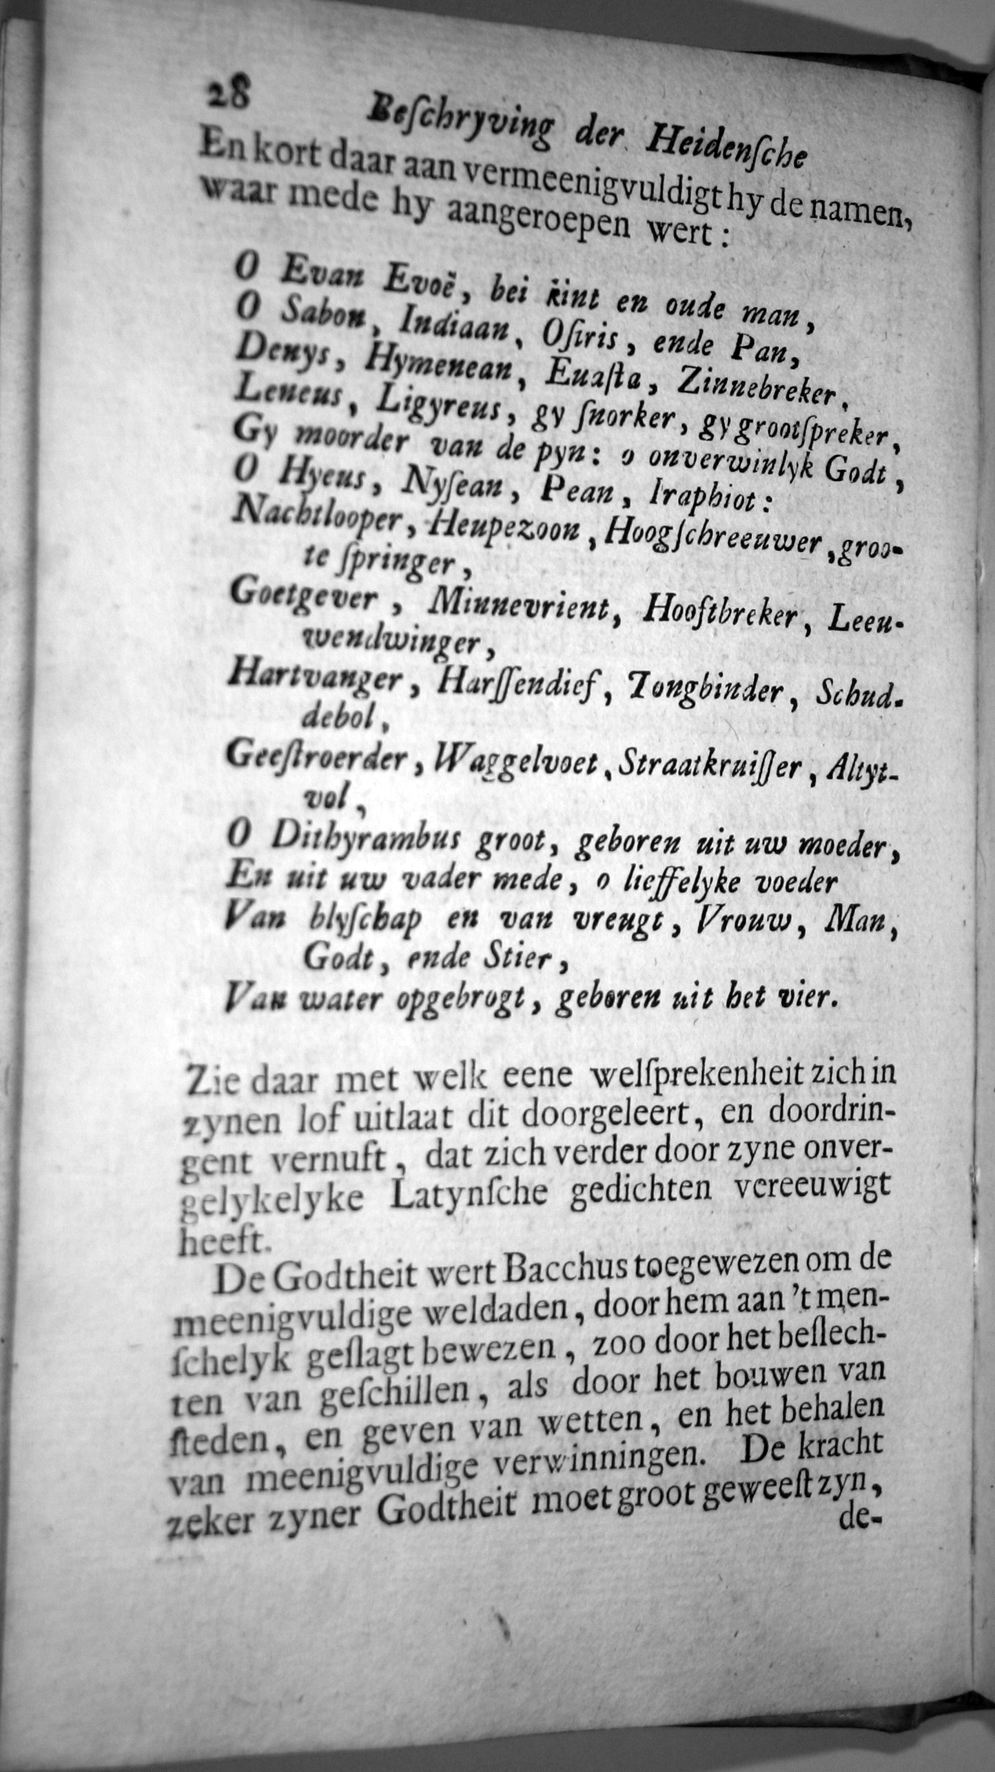 28 Beſchryving der Heidenſche
En kort daar aan vermeenigvuldigt hy de namen,
waar mede hy aangeroepen wert:
O Evan Evoë, bei kint en oude man,
O Sabon, Indiaan, Oſiris, ende Pan,
Denys, Hymenean, Euaſta, Zinnebreker,
Leneus, Ligyreus, gy ſnorker, gy grootſpreker,
Gy moorder van de pyn: o onverwinlyk Godt,
O Hyeus, Nyſean, Pean, Iraphiot:
Nachtlooper, Heupezoon, Hoogſchreeuwer, groo-
te ſpringer,
Goetgever, Minnevrient, Hooftbreker, Leeu-
wendwinger,
Hartvanger, Harſſendief, Tongbinder, Schud-
debol,
Geeſtroerder, Waggelvoet, Straatkruiſſer, Altyt-
vol,
O Dithyrambus groot, geboren uit uw moeder,
En uit uw vader mede, o lieffelyke voeder
Van blyſchap en van vreugt, Vrouw, Man,
Godt, ende Stier,
Van water opgebrogt, geboren uit het vier.
Zie daar met welk eene welſprekenheit zich in
zynen lof uitlaat dit doorgeleert, en doordrin-
gent vernuft, dat zich verder door zyne onver-
gelykelyke Latynſche gedichten vereeuwigt
heeft.
De Godtheit wert Bacchus toegewezen om de
meenigvuldige weldaden, door hem aan 't men-
ſchelyk geſlagt bewezen, zoo door het beſlech-
ten van geſchillen, als door het bouwen van
ſteden, en geven van wetten, en het behalen
van meenigvuldige verwinningen. De kracht
zeker zyner Godtheit moet groot geweeſt zyn,
de-